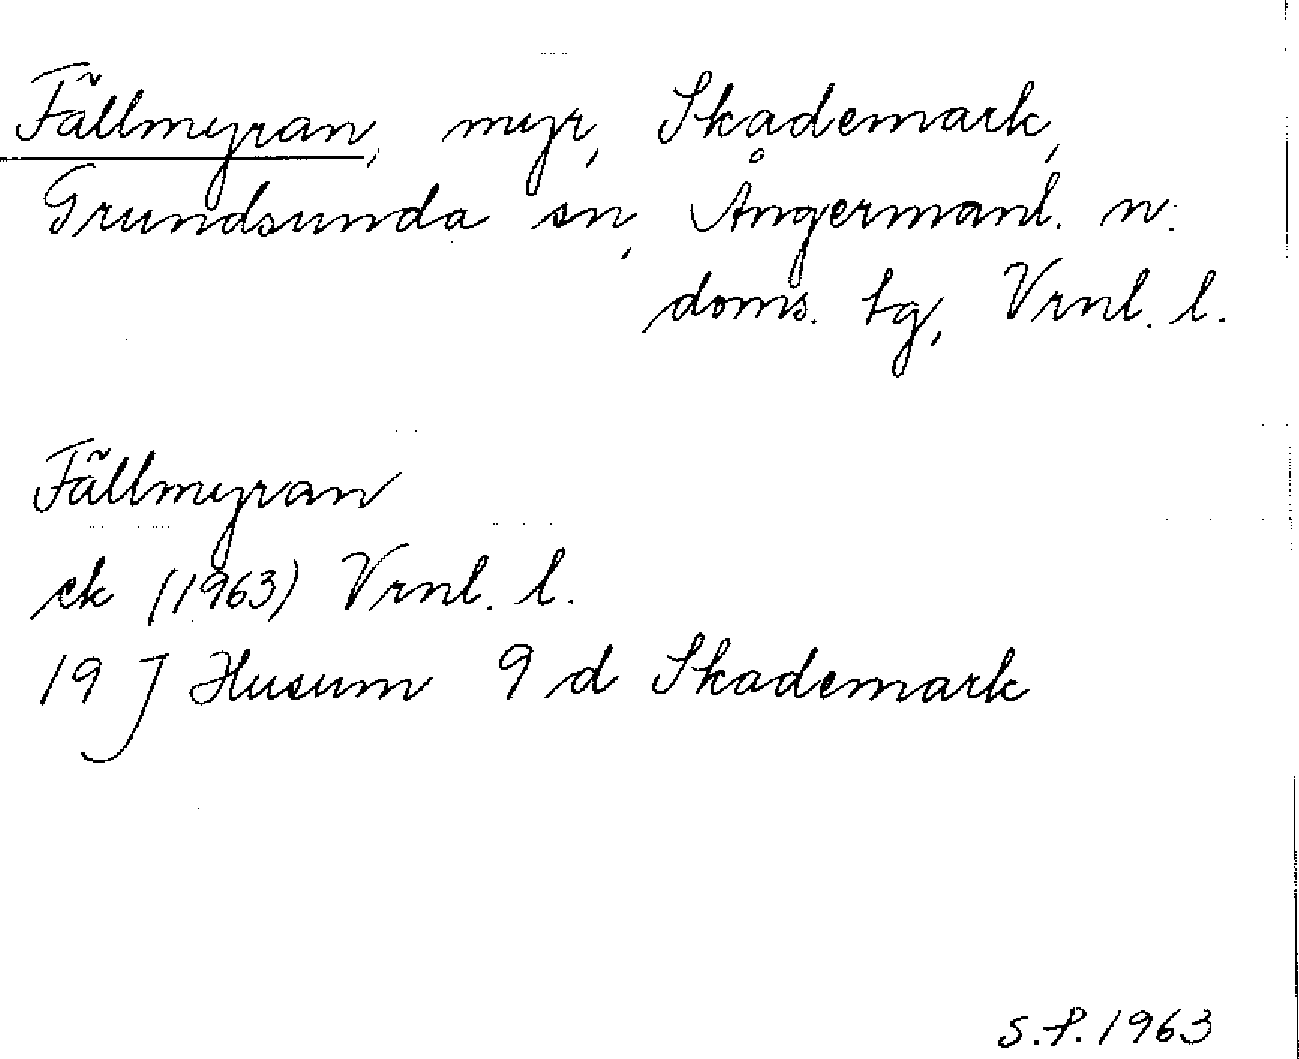 Fällmyran, myr, Skademark,
Grundsunda sn, Ångermanl. n.
doms. tg, Vrnl. l.
Fällmyran
ek (1963) Vrnl. l.
19 J Husum 9 d Skademark
S.P. 1963